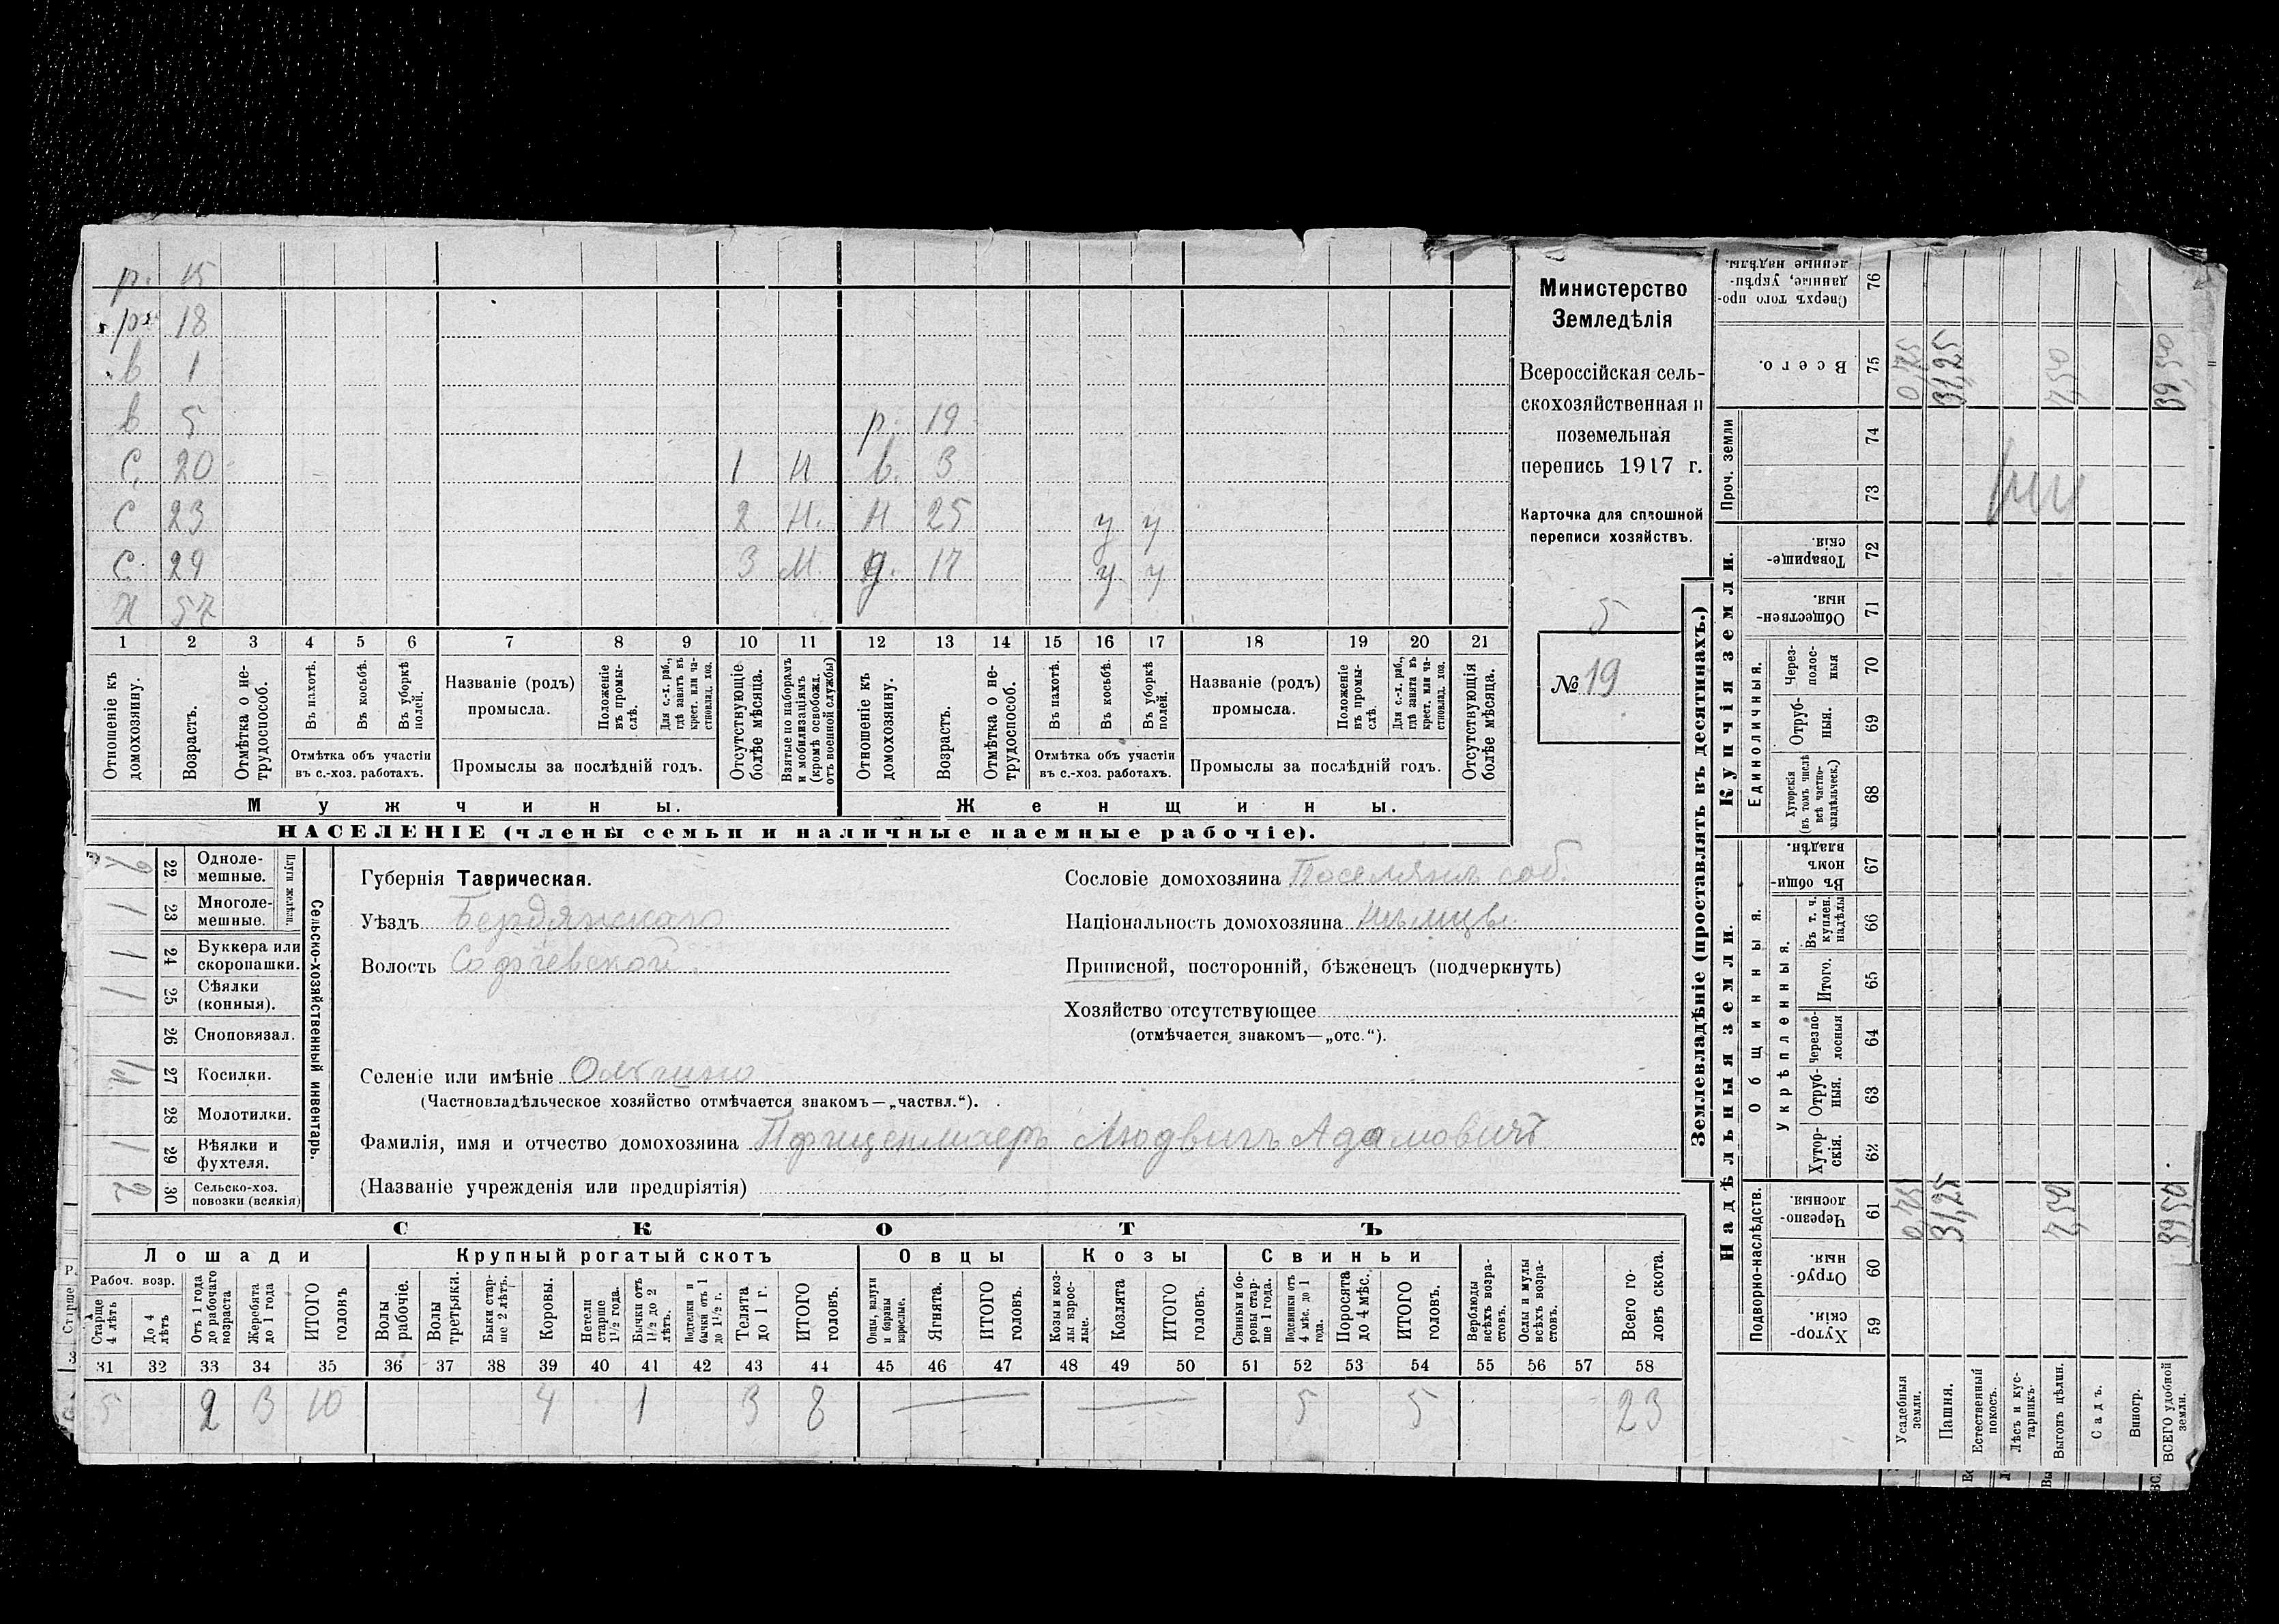 р. 15
р. 18
в 1
в 5 р. 19
С. 20 1 Н в. 3
С 23 2 Н. Н 25 у у
С. 29 3 М. д. 17 у у
Х 57
1 2 3 4 5 6 7 8 9 10 11 12 13 14 15 16 17 18 19 20 21
Отношеніе къ домохозяину.
Возрастъ.
Отмѣтка о не-трудоспособ.
Въ пахотѣ.
Въ косьбѣ.
Въ уборкѣ полей.
Отмѣтка объ участіи
въ с.-хоз. работахъ.
Названіе (родъ)
промысла.
Положеніе въ промы-слѣ.
Для с.-х. раб., гдѣ занятъ въ крест. или ча-ствовлад. хоз.
Промыслы за послѣдній годъ.
Отсутствующіе болѣе мѣсяца.
Взятые по наборамъ и мобилизаціямъ (кромѣ освобожд. отъ военной службы)
Отношеніе къ домохозяину.
Возрастъ.
Отмѣтка о не-трудоспособ.
Въ пахотѣ.
Въ косьбѣ.
Въ уборкѣ полей.
Отмѣтка объ участіи
въ с.-хоз. работахъ.
Названіе (родъ)
промысла.
Положеніе въ промы-слѣ.
Для с.-х. раб., гдѣ занята въ крест. или ча-ствовлад. хоз.
Промыслы за послѣдній годъ.
Отсутствующія болѣе мѣсяца.
Мужчины. Женщины.
НАСЕЛЕНІЕ (члены семьи и наличные наемные рабочіе).
Министерство
Земледѣлія
Всероссійская сель-
скохозяйственная и
поземельная
перепись 1917 г.
Карточка для сплошной
переписи хозяйствъ.
5
№ 19
Сельско-хозяйственный инвентарь.
Плуги желѣзн.
22 Одноле-мешные. 2
23 Многоле-мешные. 1
24 Буккера или скоропашки. 1
25 Сѣялки (конныя). 1
26 Сноповязал.
27 Косилки. 1
28 Молотилки.
29 Вѣялки и фухтеля. 1
30 Сельско-хоз. повозки (всякія) 2
Губернія Таврическая.
Уѣздъ Бердянскаго
Волость Софіевской
Сословіе домохозяина Поселянъ соб.
Національность домохозяина Нѣмцы
Приписной, посторонній, бѣженецъ (подчеркнуть)
Хозяйство отсутствующее
(отмѣчается знакомъ—„отс.“).
Селеніе или имѣніе Ольгино
(Частновладѣльческое хозяйство отмѣчается знакомъ—„частвл.“).
Фамилія, имя и отчество домохозяина Людвигъ Адамовичъ
(Названіе учрежденія или предпріятія)
СКОТЪ
Лошади Крупный рогатый скотъ Овцы Козы Свиньи
Рабоч. возр.
Старше 4 лѣтъ
До 4 лѣтъ
Отъ 1 года до рабочаго возраста
Жеребята до 1 года
ИТОГО головъ
Волы рабочіе.
Волы третьяки.
Быки стар-ше 2 лѣтъ.
Коровы.
Нетели старше 1½ года.
Бычки отъ 1½ до 2 лѣтъ.
Подтелки и бычки отъ 1 до 1½ г.
Телята до 1 г.
ИТОГО головъ.
Овцы, валухи и бараны взрослые.
Ягнята.
ИТОГО головъ.
Козы и коз-лы взрос-лые.
Козлята
ИТОГО головъ.
Свиньи и бо-ровы стар-ше 1 года.
Подсвинки отъ 4 мѣс. до 1 года.
Поросята до 4 мѣс.
ИТОГО головъ.
Верблюды всѣхъ возра-стовъ.
Ослы и мулы всѣхъ возра-стовъ.
Всего го-ловъ скота.
31 32 33 34 35 36 37 38 39 40 41 42 43 44 45 46 47 48 49 50 51 52 53 54 55 56 57 58
5 2 3 10 4 1 3 8 — — 5 5 23
Землевладѣніе (проставлять въ десятинахъ.)
Надѣльныя земли. Купчія земли.
Подворно-наслѣдств.
Общинныя.
Укрѣпленныя.
Единоличныя.
Проч. земли
Хутор-скія. 59
Отруб-ныя. 60
Черезпо-лосныя. 61
Хутор-скія. 62
Отруб-ныя. 63
Черезпо-лосныя 64
Итого. 65
Въ т. ч. куплен. надѣлы 66
Въ общин-номъ владѣн. 67
Хуторскія (въ томъ числѣ всѣ частно-владѣльческ.) 68
Отруб-ныя. 69
Через-полос-ныя 70
Обществен-ныя. 71
Товарище-скія. 72
73
74
Всего. 75
Сверхъ того про-данные, укрѣп-ленные надѣлы. 76
Усадебныя земли. 0,75 0,75
Пашня. 31,25 31,25
Естественный покосъ.
Лѣсъ и кус-тарникъ.
Выгонъ цѣлин. 7,50 7,50
Садъ.
Виногр.
ВСЕГО удобной земли. 39,50 39,50